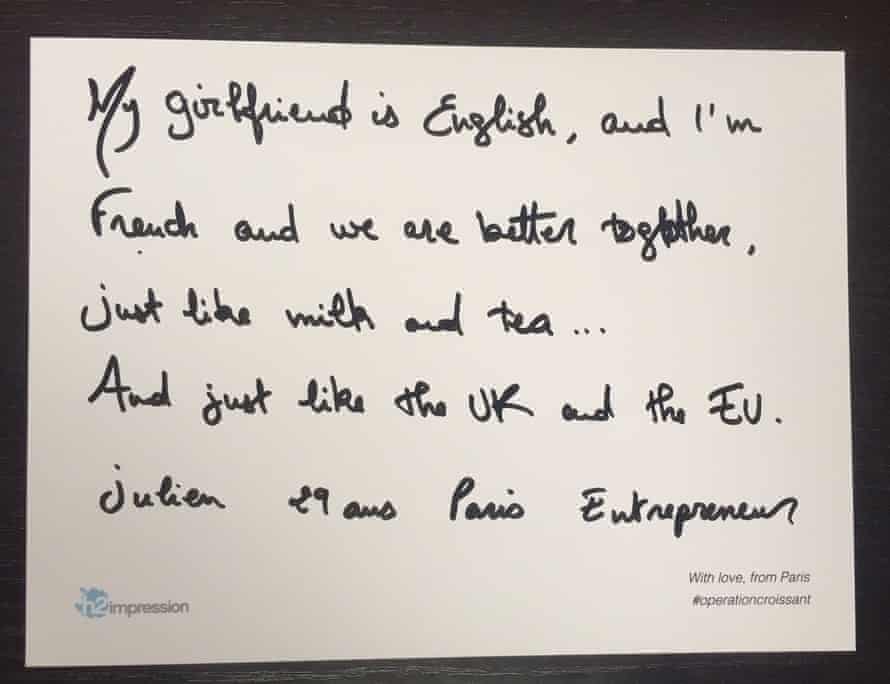 My girlfriend is English, and I'm
French and we are better together,
just like milk and tea...
And just like the UK and the EU.
julien 29 ans Paris Entrepreneur
With love, from Paris
#operationcroissant
h2impression